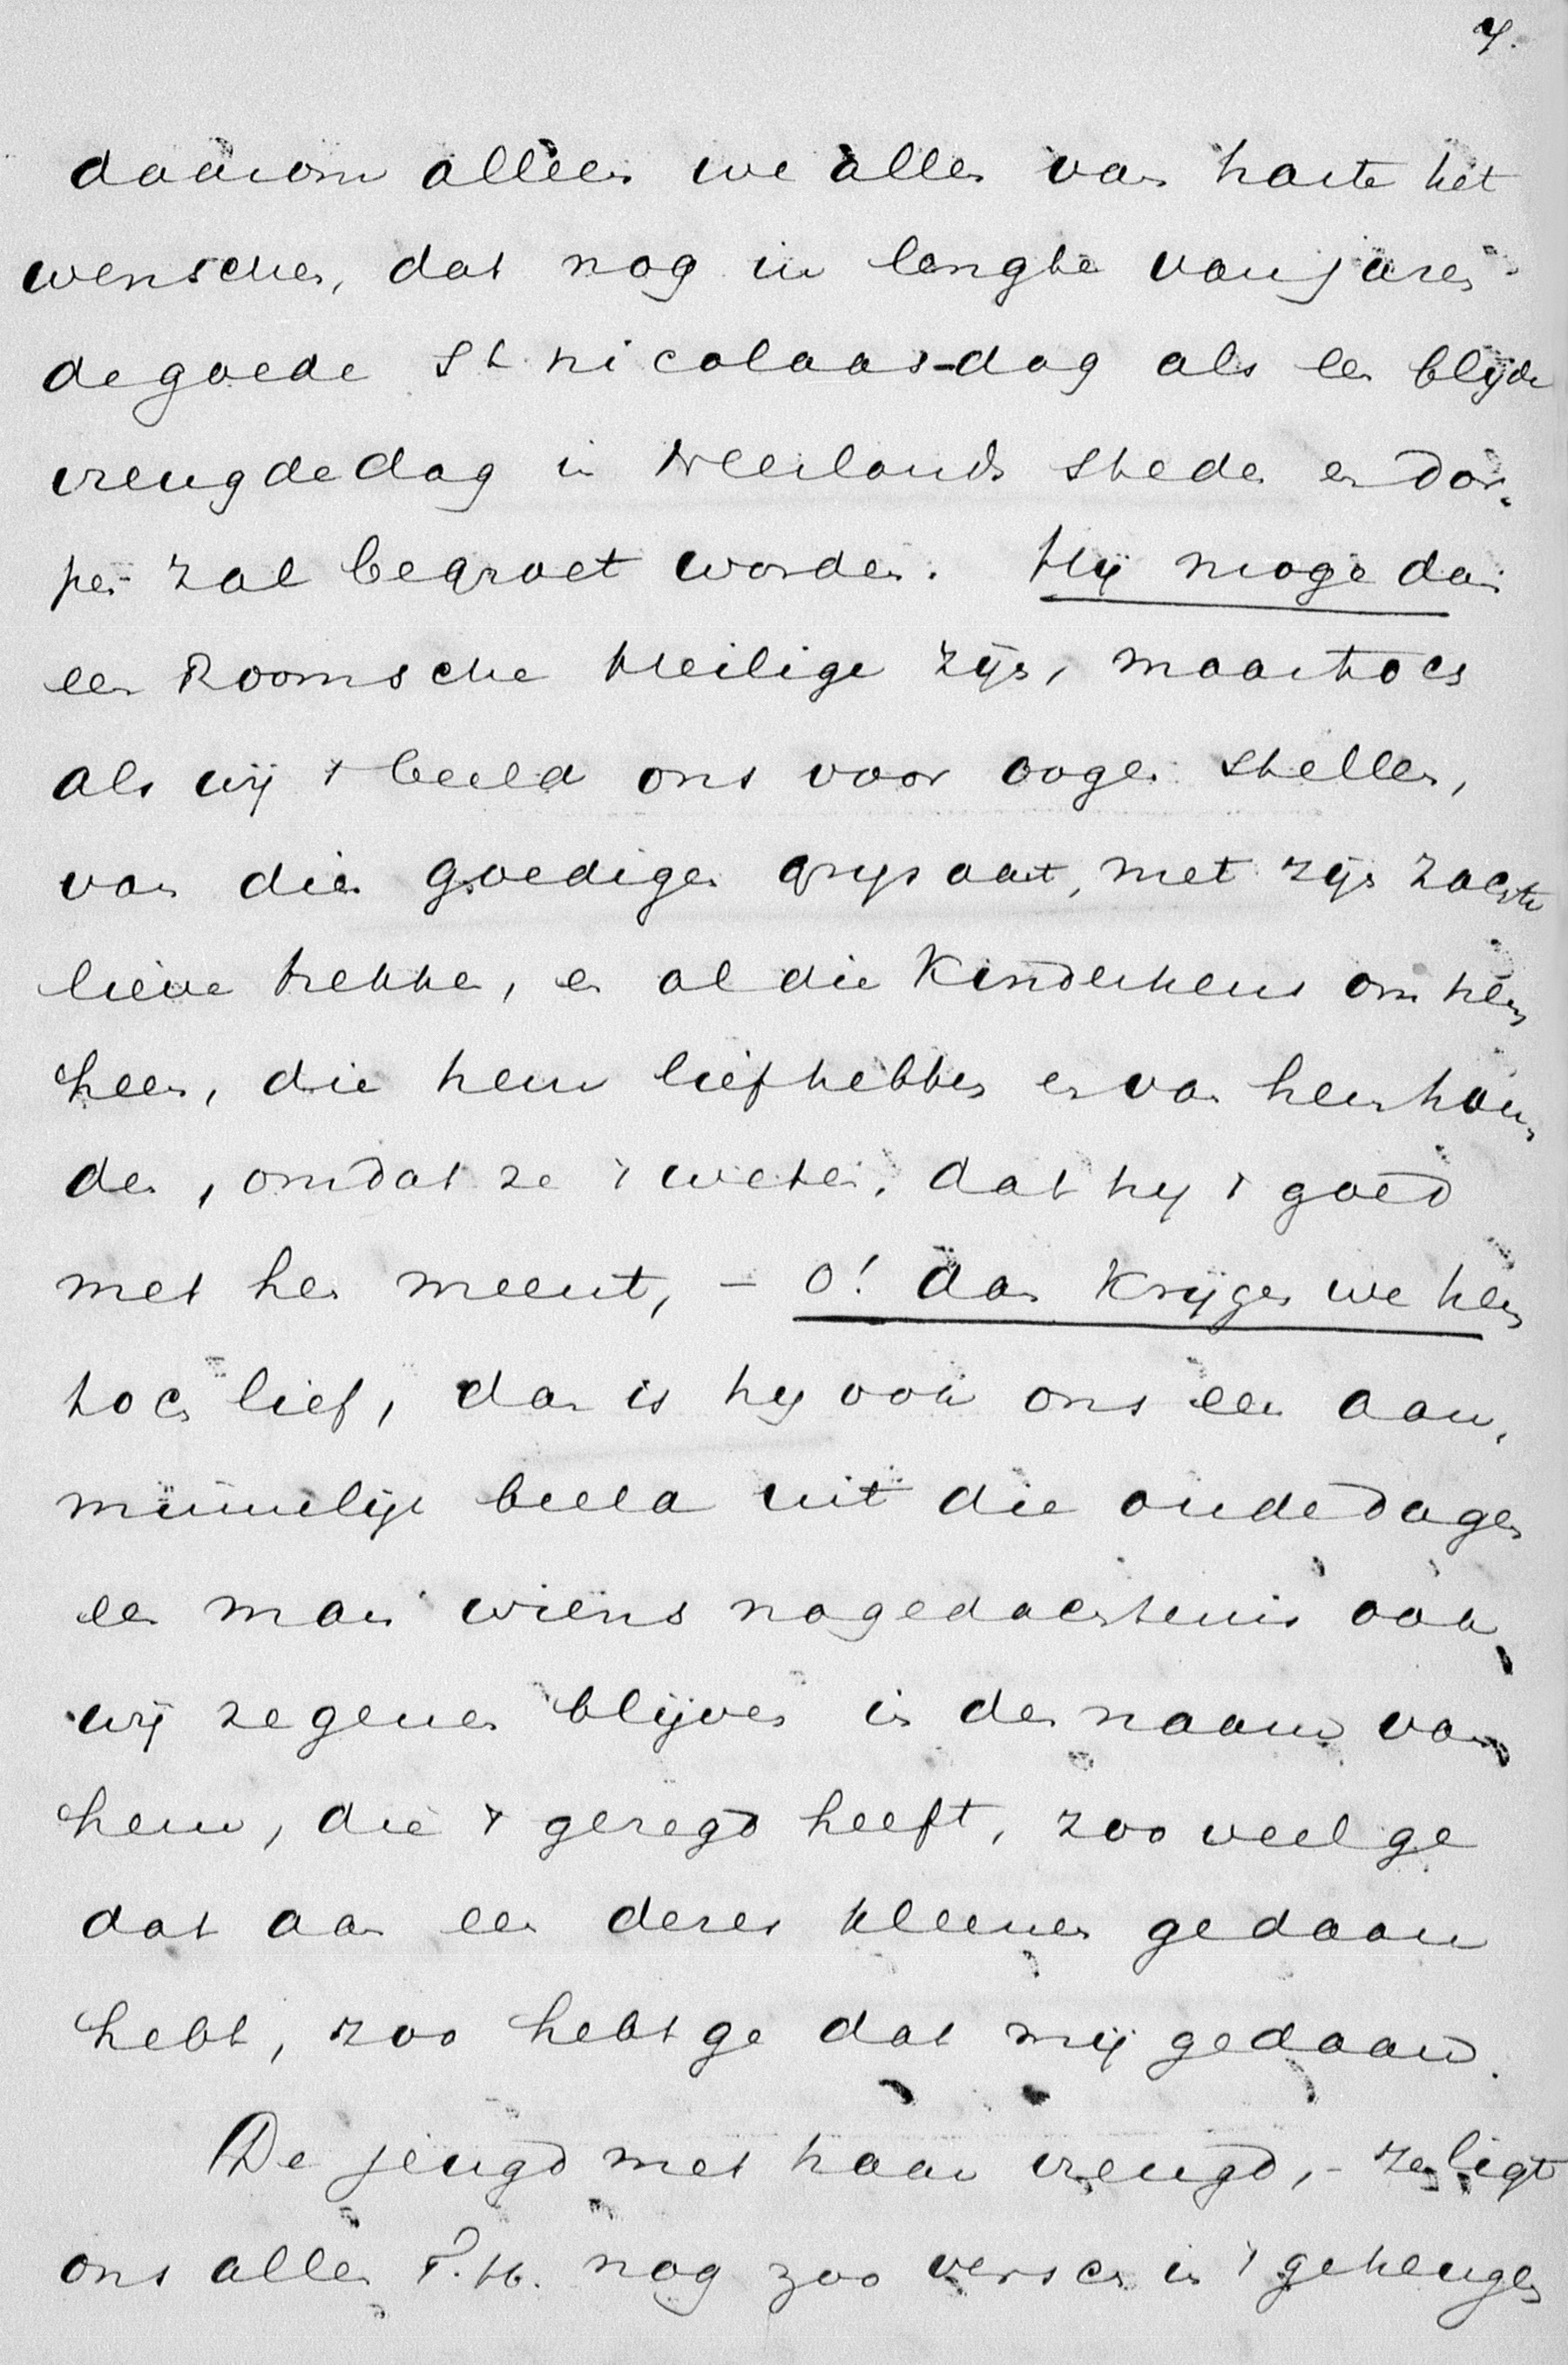 7.
daarom alleen we allen van harte het
wenschen, dat nog in lengte van jaren
de goede St. Nicolaas-dag als een blijde
vreugdedag in Neerlands steden en dor-
pen zal begroet worden. Hij moge dan
een Roomsche Heilige zijn, maar toch
als wij 't beeld ons voor oogen stellen,
van dien goedigen grijsaart, met zijn zachte
lieve trekken, en al die Kinderkens om hem
heen, die hem liefhebben en van hem hou-
den, omdat ze 't weten, dat hij 't goed
met hen meent, - o! dan krijgen we hem
toch lief, dan is hij ook ons een aan-
minnelijk beeld uit die oude dagen
een man wiens nagedachtenis ook
wij zegenen blijven in den naam van
hem, die 't gezegd heeft, zoo veel ge
dat aan een dezer kleenen gedaan
hebt, zoo hebt ge dat mij gedaan.
De jeugd met haar vreugd, - ze ligt
ons allen T.H. nog zoo versch in 't geheugen